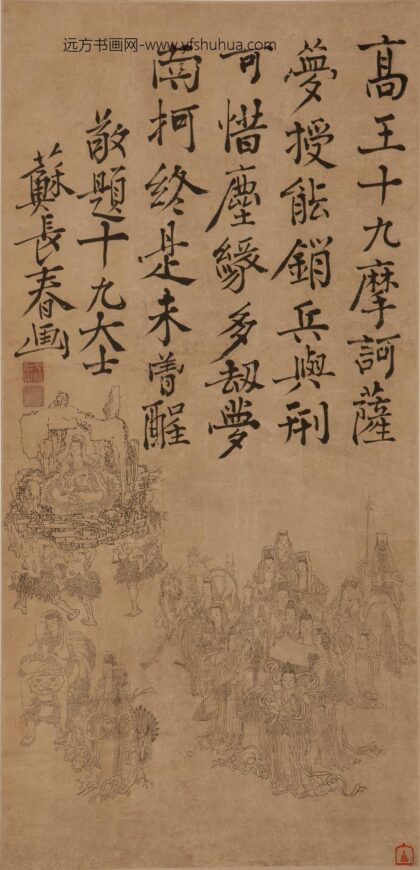 远方书画网-www.yfshuhua.com
高王十九摩訶薩
夢授能銷兵與刑
可惜塵緣多劫夢
南柯終是未曾醒
敬題十九大士
蘇長春画